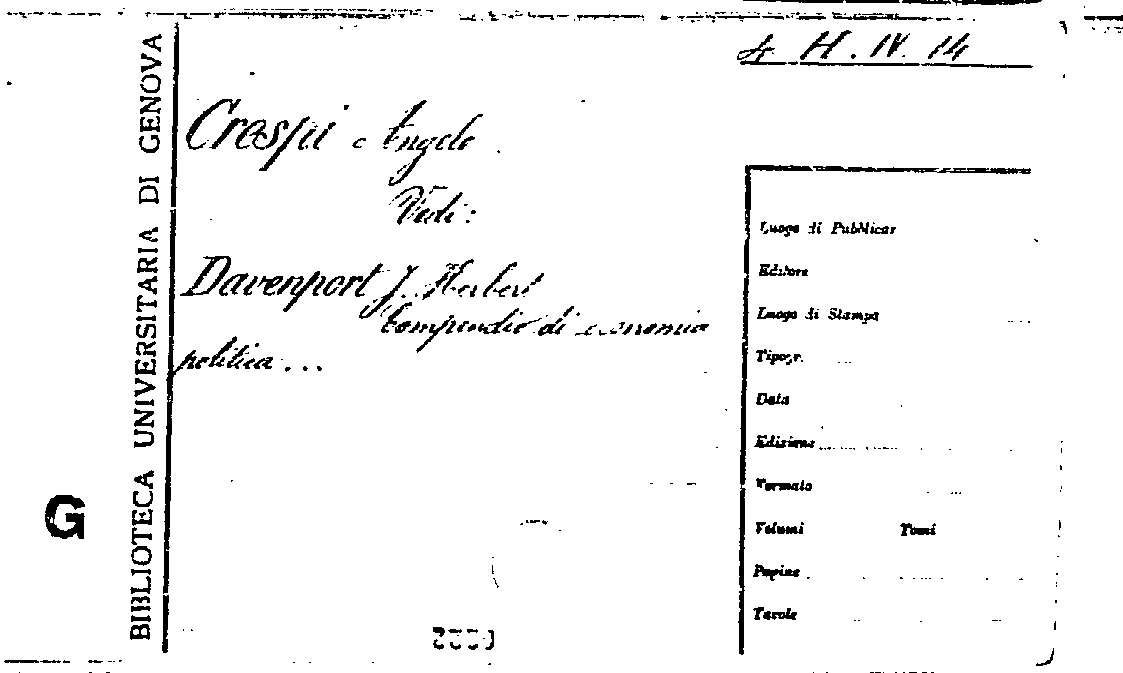 4 H. IV. 14
BIBLIOTECA UNIVERSITARIA DI GENOVA
G
Crespi Angelo
Vedi:
Davenport J. Herbert
Compendio di economia
politica...
Luogo di Pubblicaz
Editore
Luogo di Stampa
Tipogr.
Data
Edizione
Formato
Volumi Tomi
Pagine
Tavole